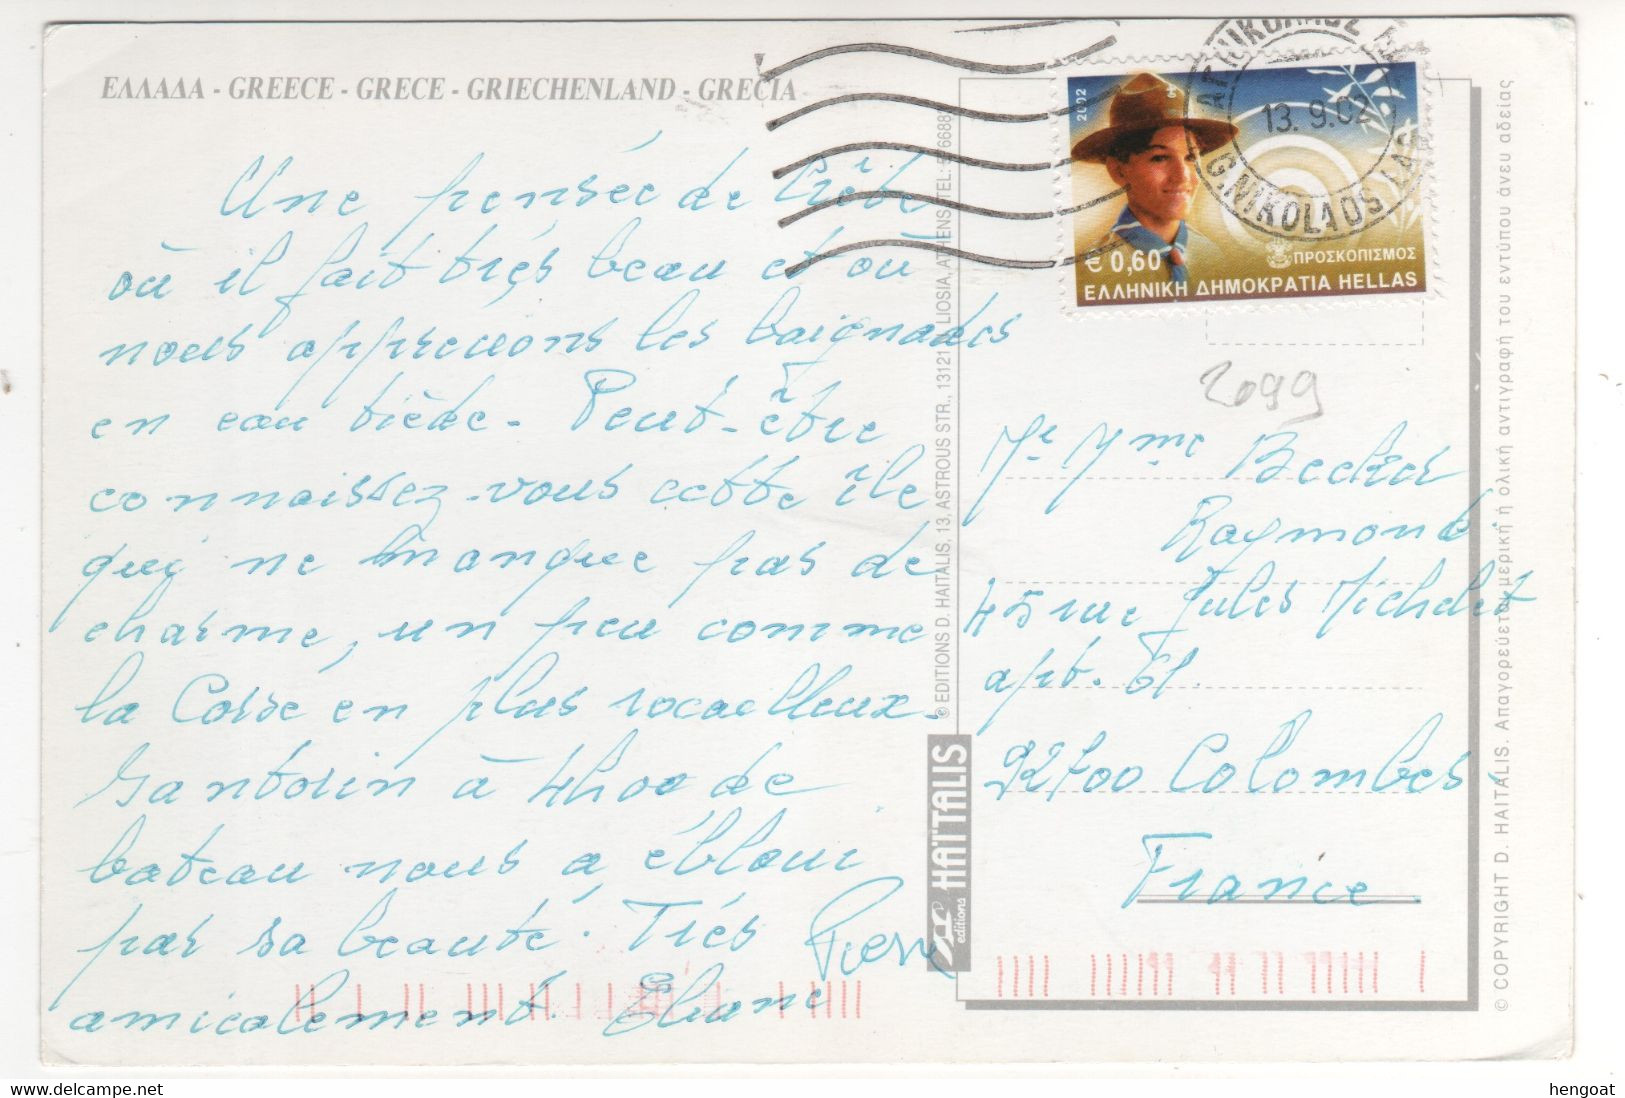 ΕΛΛΑΔΑ - GREECE - GRECE - GRIECHENLAND - GRECIA
Une pensée de Crète
où il fait très beau et où
nous apprecions les baignades
en eau tiède - Peut-être
connaissez-vous cette île
qui ne manque pas de
charme, un peu comme
la Corse en plus rocailleux.
Santorin à 4h00 de
bateau nous a ébloui
par sa beauté. Très
amicalement. Eliane
Pierre
© EDITIONS D. HAITALIS, 13, ASTROUS STR., 13121 LIOSIA, ATHENS
HAÏTALIS
editions
2002
€ 0,60
ΠΡΟΣΚΟΠΙΣΜΟΣ
ΕΛΛΗΝΙΚΗ ΔΗΜΟΚΡΑΤΙΑ HELLAS
13. 9.02
G.NIKOLAOS LAS
2099
Mr Mme Becker
Raymond
45 rue Jules Michelet
apt. 61.
92700 Colombes
France
© COPYRIGHT D. HAITALIS. Απαγορεύεται μερική ή ολική αντιγραφή του εντύπου άνευ αδείας
delcampe.net
hengoat